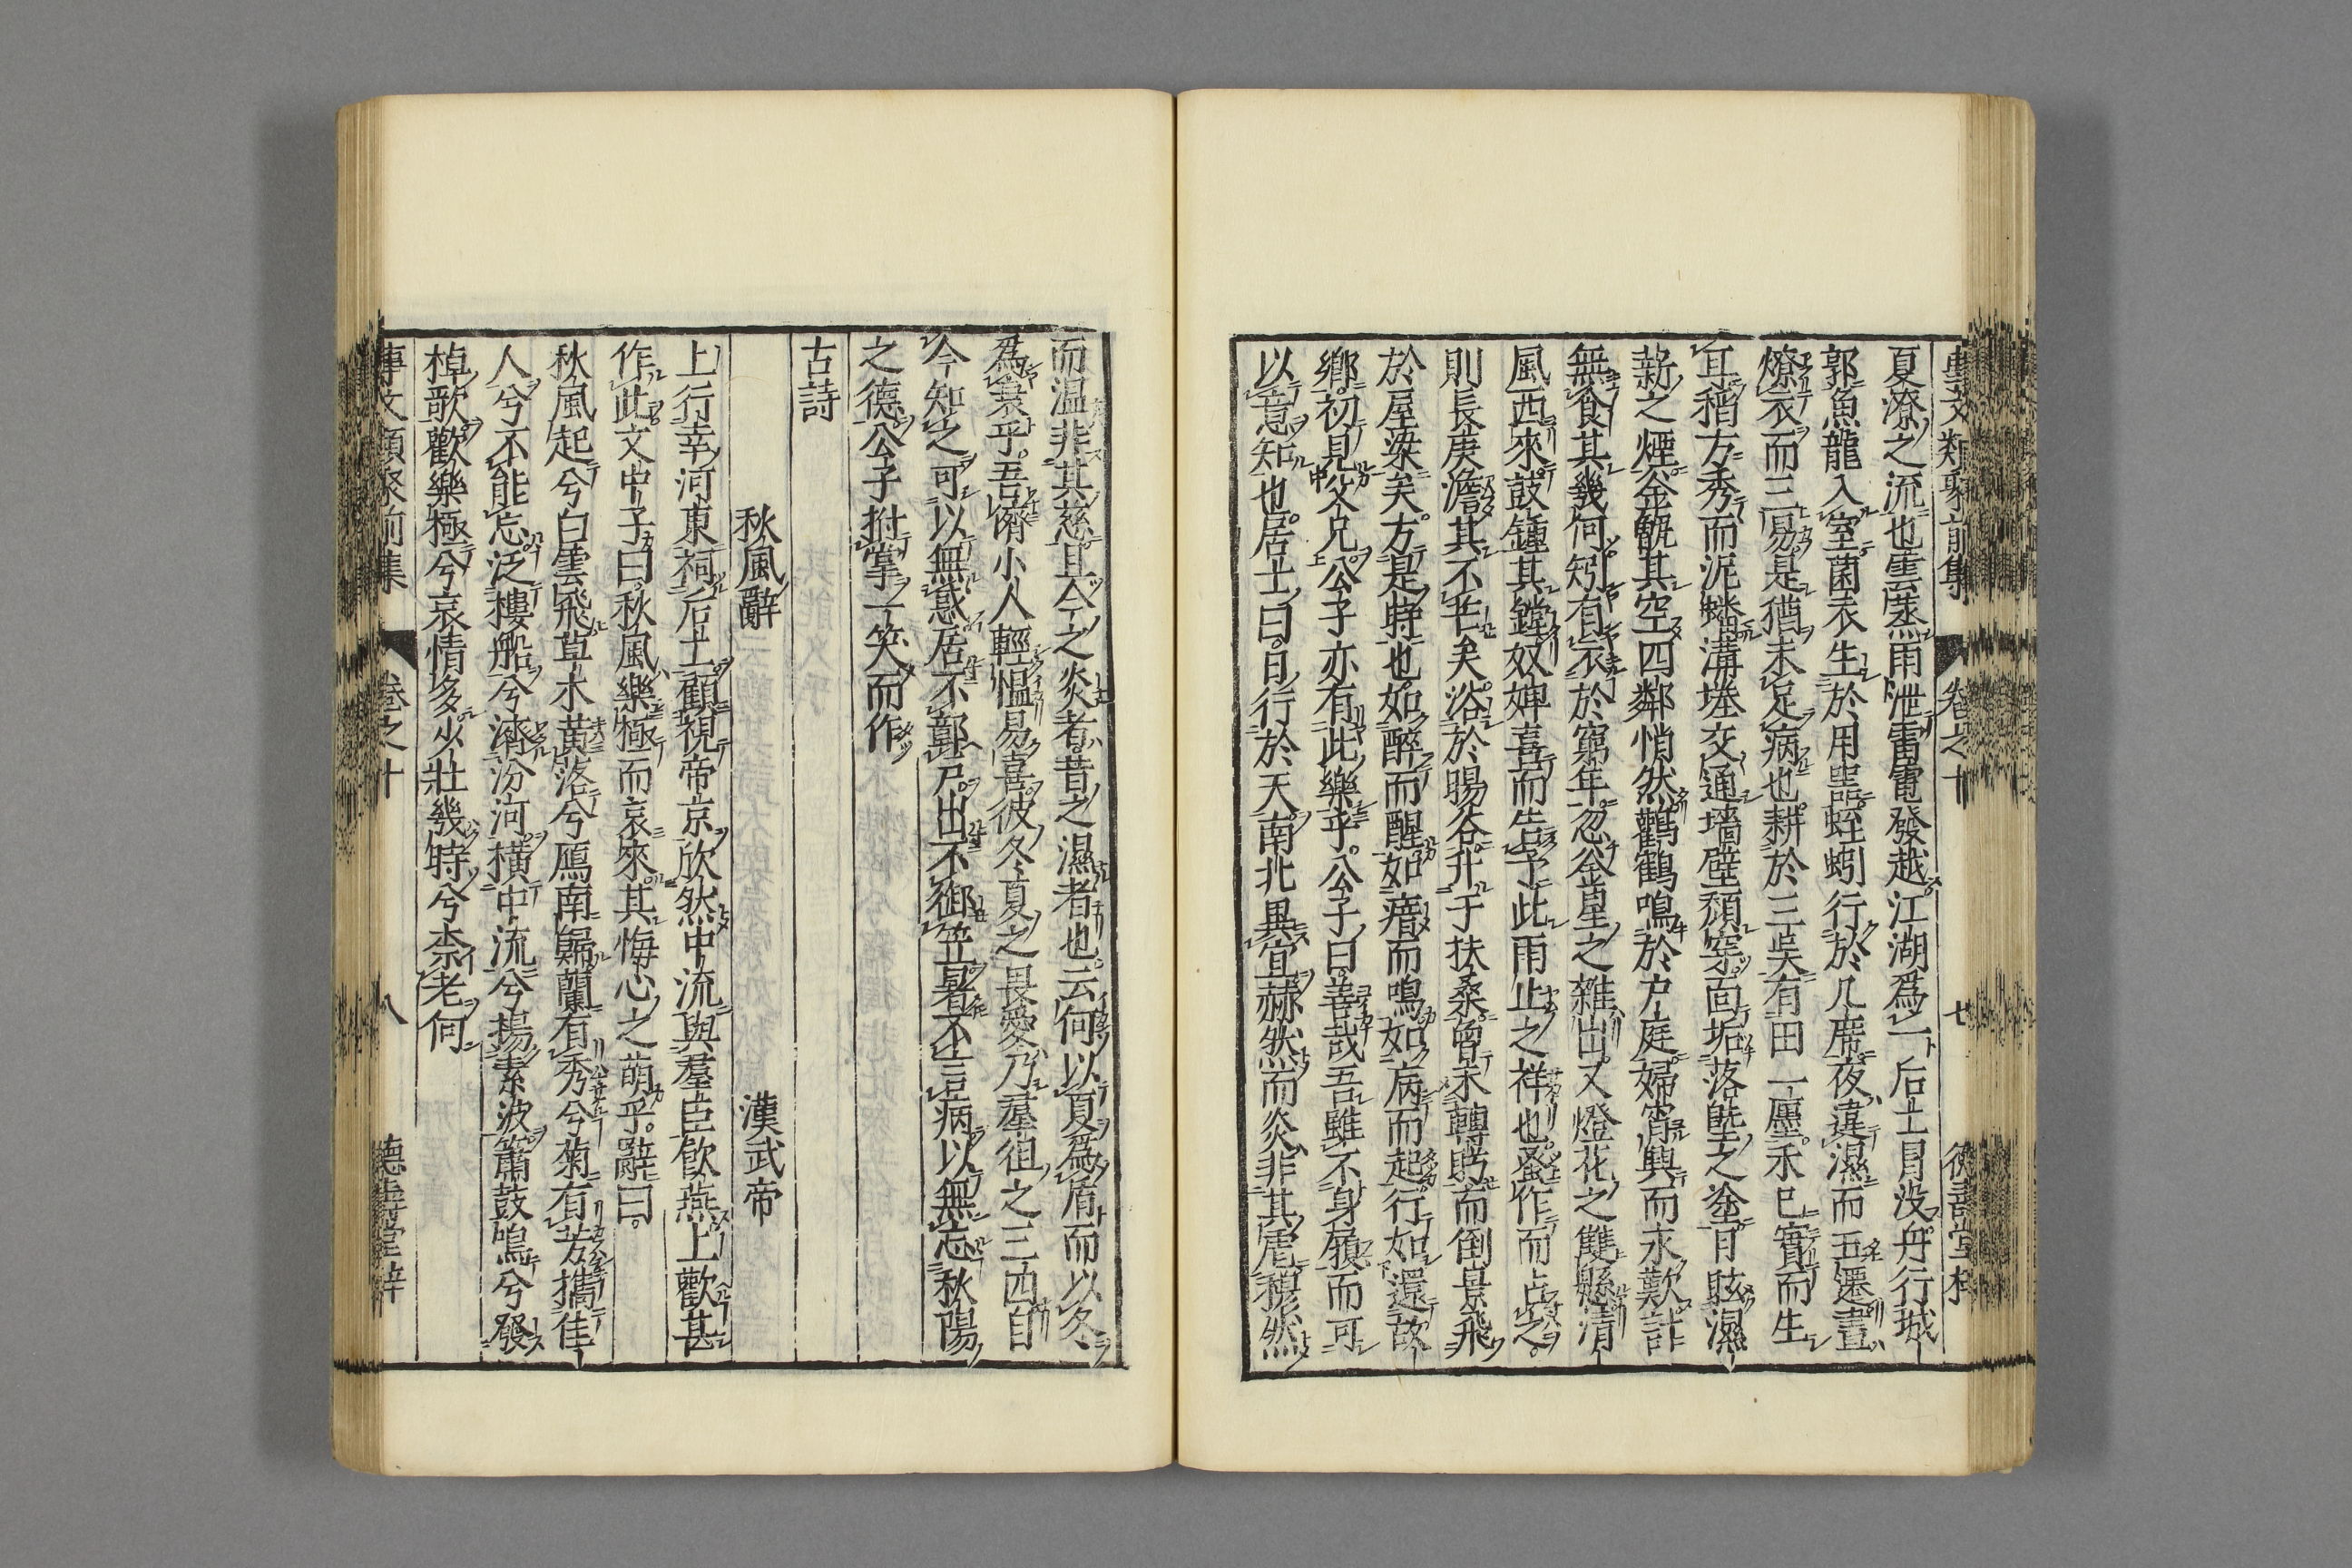 事文類聚前集 卷之十 七 德壽堂梓
夏潦之流也雲蒸雨泄雷電發越江湖爲一后土冒没舟行城
郭魚龍入室菌衣生於用噐蛭蚓行於几席夜違濕而五遷晝
燎衣而三易是猶未足病也耕於三吳有田一廛禾已實而生
耳稻方秀而泥蟠溝塍交通墻壁頽穿面垢落塈之塗目眩濕
薪之煙釜甑其空四鄰悄然鸛鶴鳴於户庭婦宵興而永歎計
無食其幾何矧有衣於窮年忽釜星之雜出又燈花之雙懸清
風西來鼓鍾其鏜奴婢喜而告予此雨止之祥也蚤作而占之
則長庚澹其不芒矣浴於暘谷升于扶桑曾未轉盻而倒景飛
於屋梁矣方是時也如醉而醒如瘖而鳴如病而起行如還故
鄉初見父兄公子亦有此樂乎公子曰善哉吾雖不身履而可
以意知也居士曰日行於天南北異宜赫然而炎非其虐穆然
而温非其慈且今之炎者昔之濕者也云何以夏爲盾而以冬
爲衰乎吾儕小人輕慍易喜彼冬夏之畏愛乃羣狙之三四自
今知之可以無惑居不墐户出不御笠暑不言病以無忘秋陽
之德公子拊掌一笑而作
古詩
秋風辭 漢武帝
上行幸河東祠后土顧視帝京欣然中流與羣臣飲燕上歡甚
作此文中子曰秋風樂極而哀來其悔心之萌乎辭曰
秋風起兮白雲飛草木黄落兮鴈南歸蘭有秀兮菊有芳攜佳
人兮不能忘泛樓船兮濟汾河橫中流兮揚素波簫鼓鳴兮發
棹歌歡樂極兮哀情多少壯幾時兮柰老何
事文類聚前集 卷之十 八 德壽堂梓